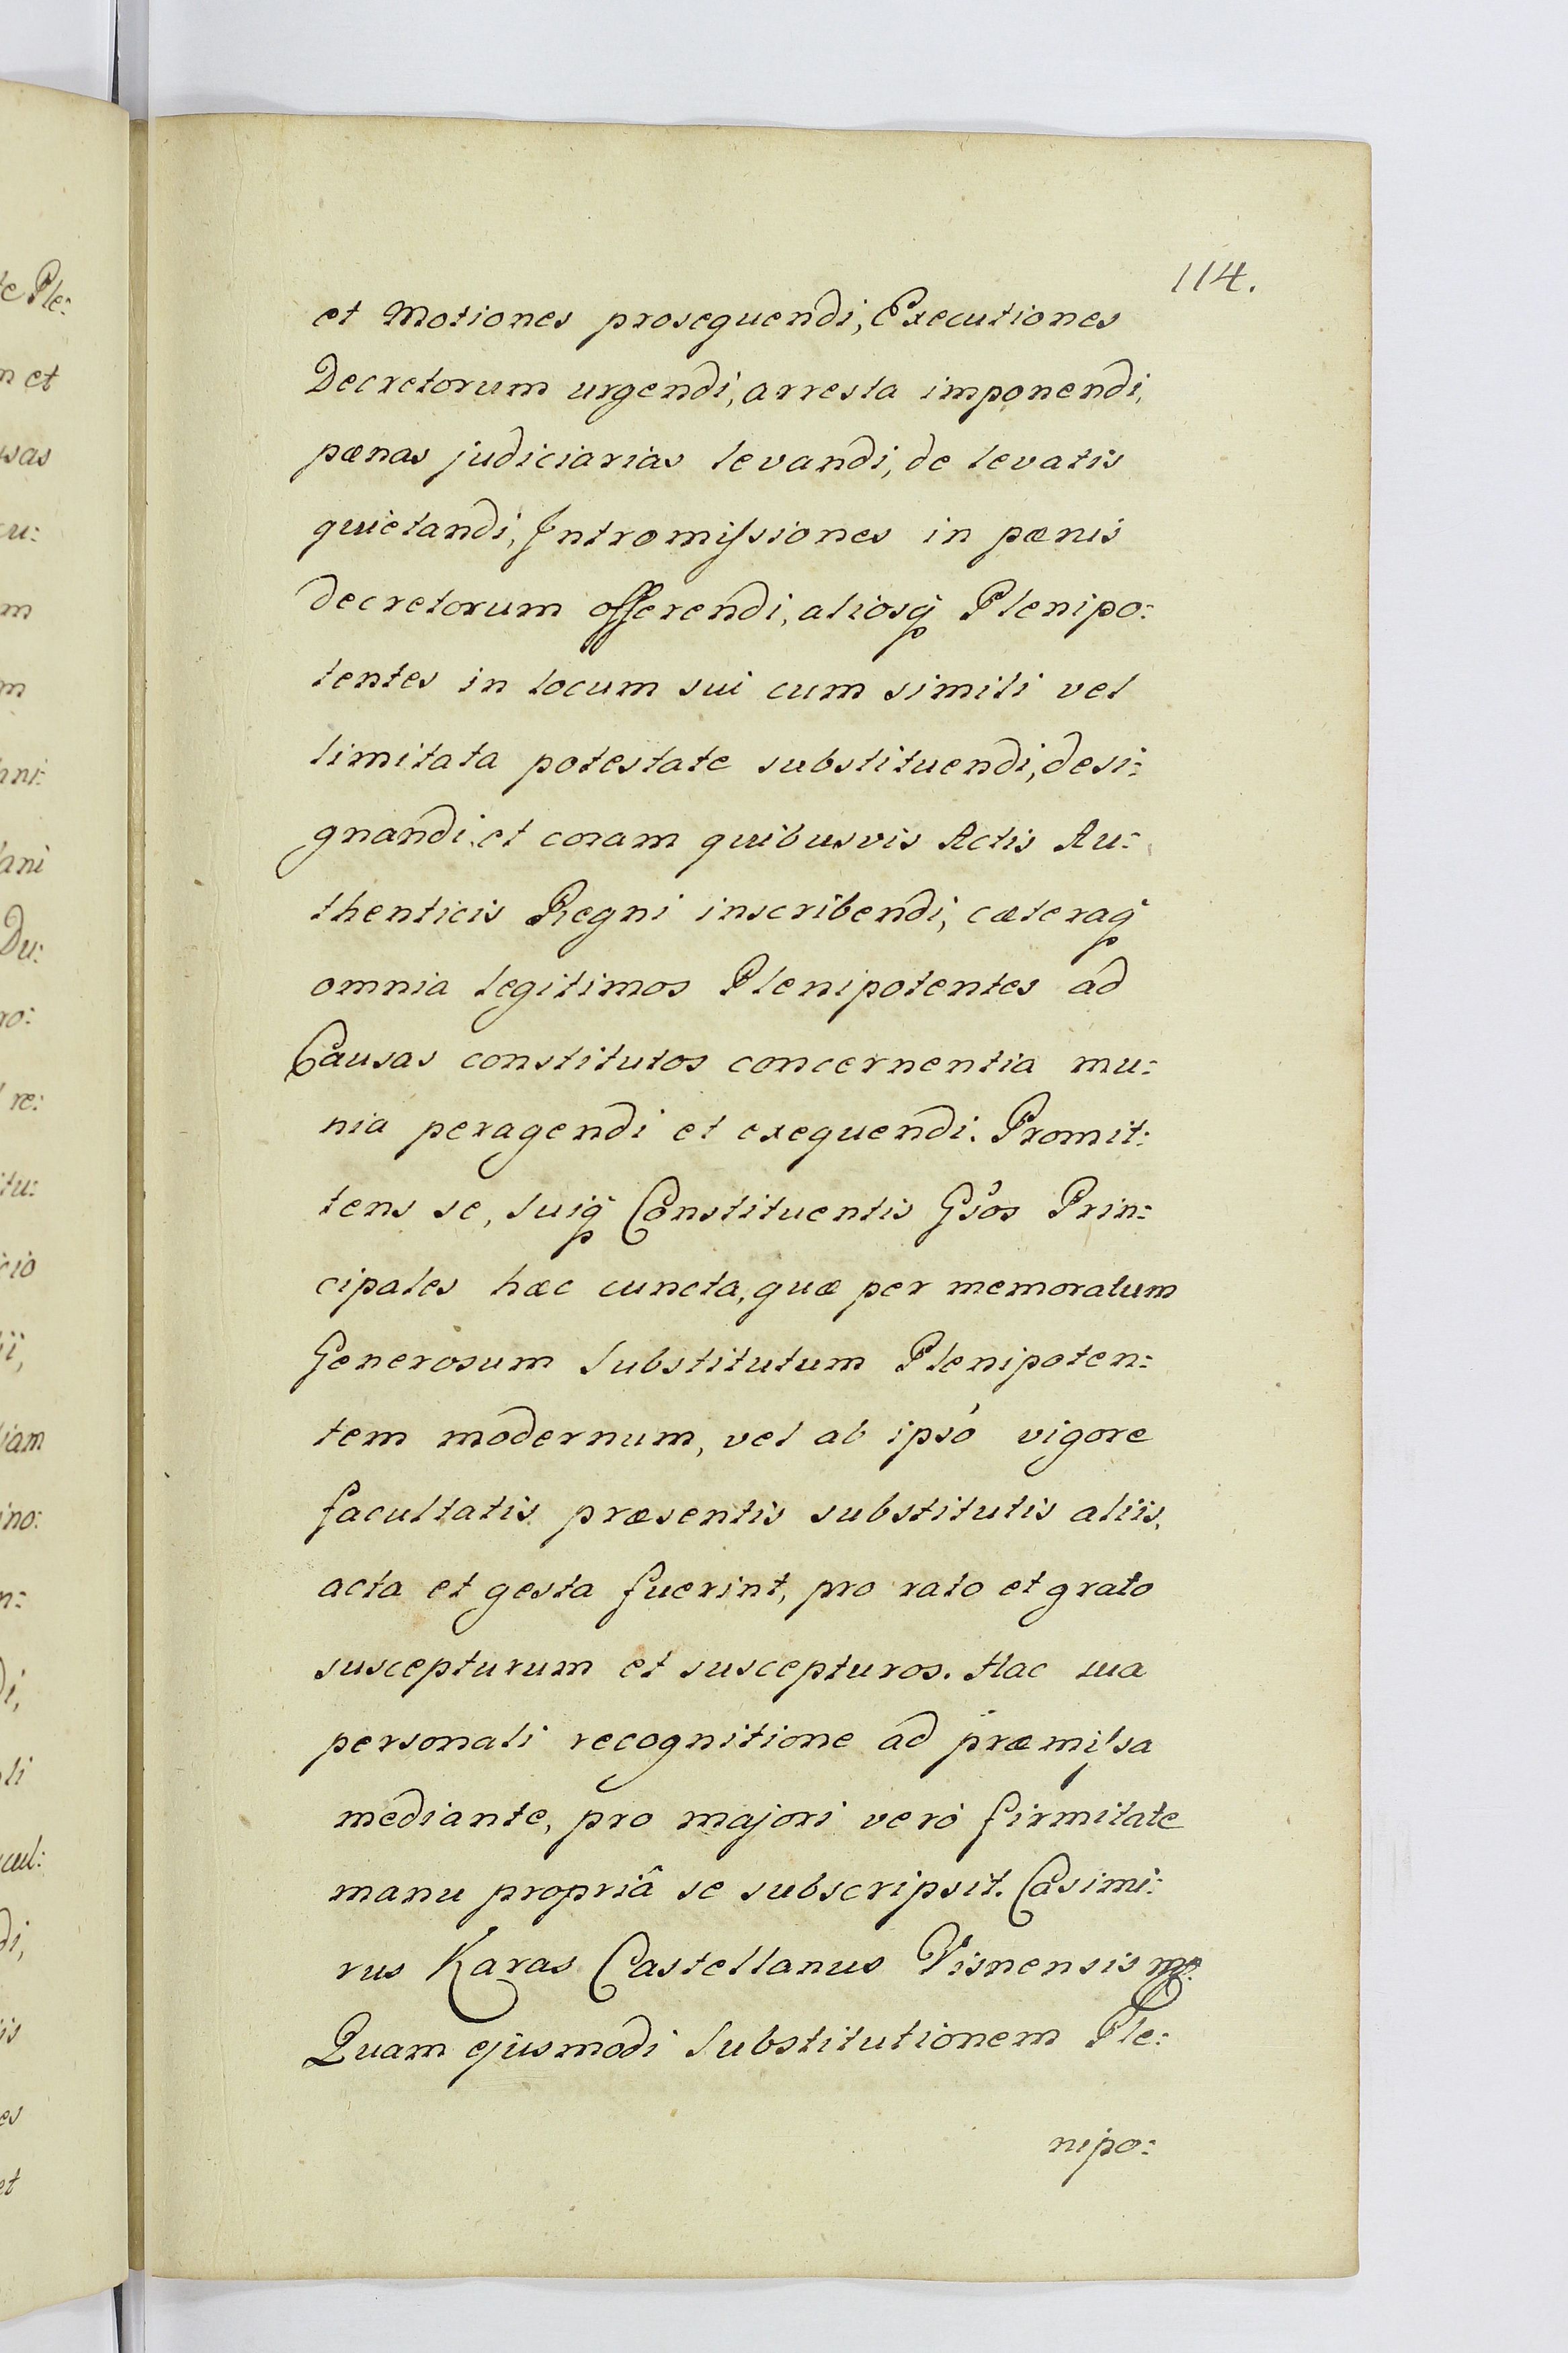 114.
et Motiones prosequendi, Executiones
Decretorum urgendi, arresta imponendi,
pænas judiciarias levandi, de levatis
quietandi, Intromiſsiones in pænis
decretorum offerendi, aliosq̃ Plenipo:
tentes in locum sui cum simili vel
limitata potestate substituendi, desi:
gnandi, et coram quibusvis Actis Au:
thenticis Regni inscribendi, cæteraq̃
omnia legitimos Plenipotentes ad
Causas constitutos concernentia mu:
nia peragendi et exequendi. Promit:
tens se, Suiq̃ Constituentis Gsos Prin:
cipales hæc cuncta, quæ per memoratum
Generosum Substitutum Plenipoten:
tem modernum, vel ab ipsó vigore
facultatis præsentis substitutis aliis,
acta et gesta fuerint, pro rato et grato
suscepturum et suscepturos. Hac sua
personali recognitione ad præmiſsa
mediante, pro majori verò firmitate
manu propriâ se subscripsit. Casimi:
rus Karas Castellanus Visnensis mp.
Quam ejusmodi Substitutionem Ple:
nipo:
te Ple:
n et
cu:
m
m
ani
Du:
ro:
re:
itu:
cio
ii,
iam
ino:
n:
di,
li
cul:
di,
is
es
et